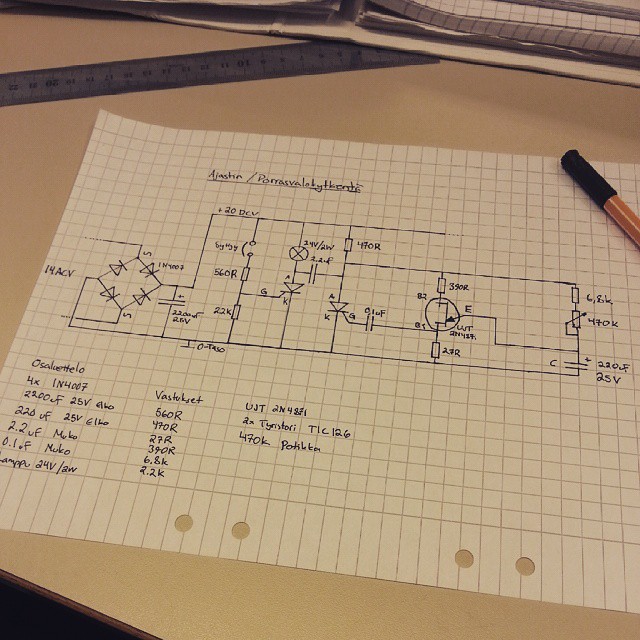 Ajastin / Porrasvalokytkentä
+20DCV
14ACV
1N4007
+
2200uF
25V
560R
2.2k
24V/2W
2.2uF
470R
A
G
K
A
G
K
0.1uF
390R
B2
E
B1
UJT
2N4871
27R
6,8k
470k
C
+
220uF
25V
0-Taso
Osaluettelo
4x 1N4007
2200uF 25V Elko
220uF 25V Elko
2.2uF Muko
0.1uF Muko
Lamppu 24V/2W
Vastukset
560R
470R
27R
390R
6.8k
2.2k
UJT 2N4871
2x Tyristori TIC126
470k Potikka